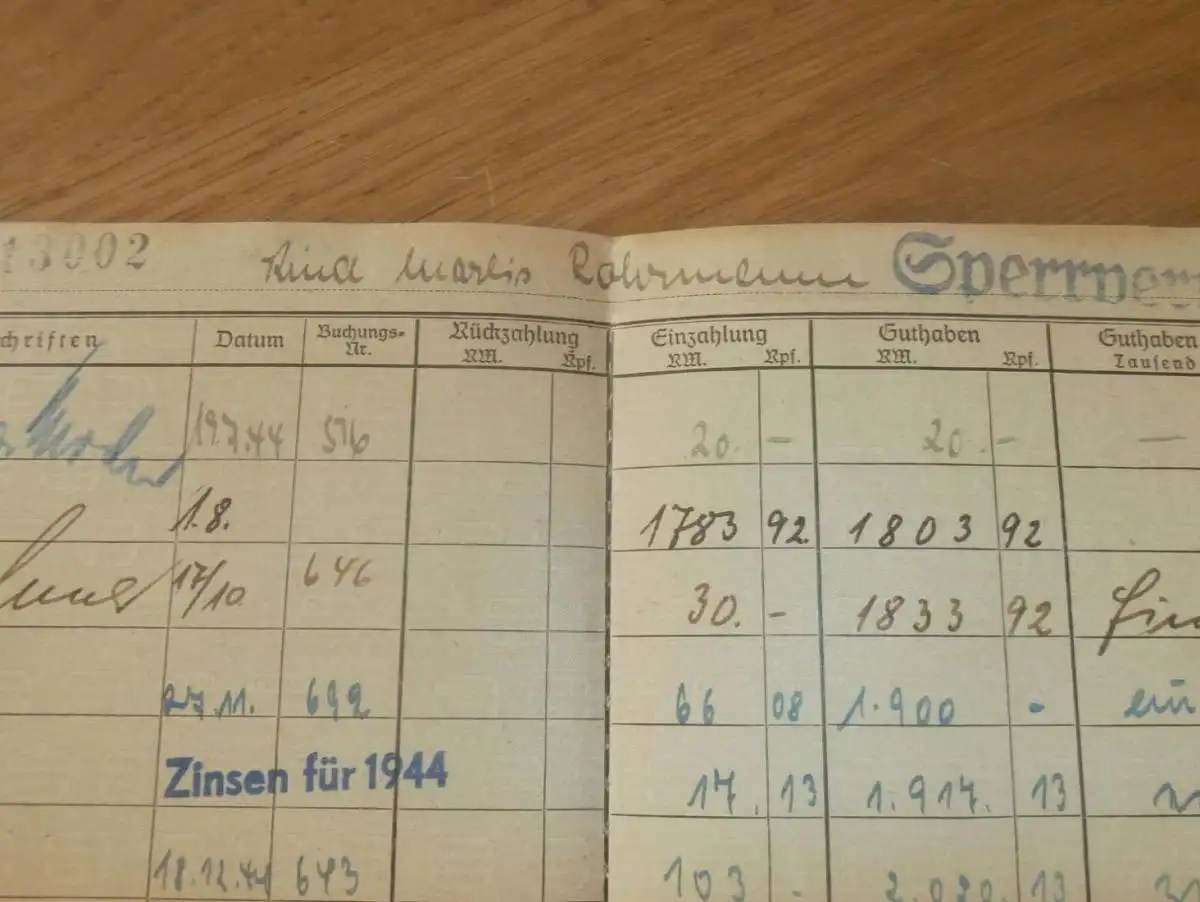 13002 Kind Marlis Rohrmann Sperrver
chriften Datum Buchungs-Nr. Rückzahlung RM. Rpf. Einzahlung RM. Rpf. Guthaben RM. Rpf. Guthaben Tausend
19.7.44 516 20. — 20. — —
1.8. 1783 92 1803 92
17/10 646 30. - 1833 92
27.11. 692 66 08 1.900 - ein
Zinsen für 1944 17. 13 1.917. 13
18.12.44 643 103 - 2.020. 13